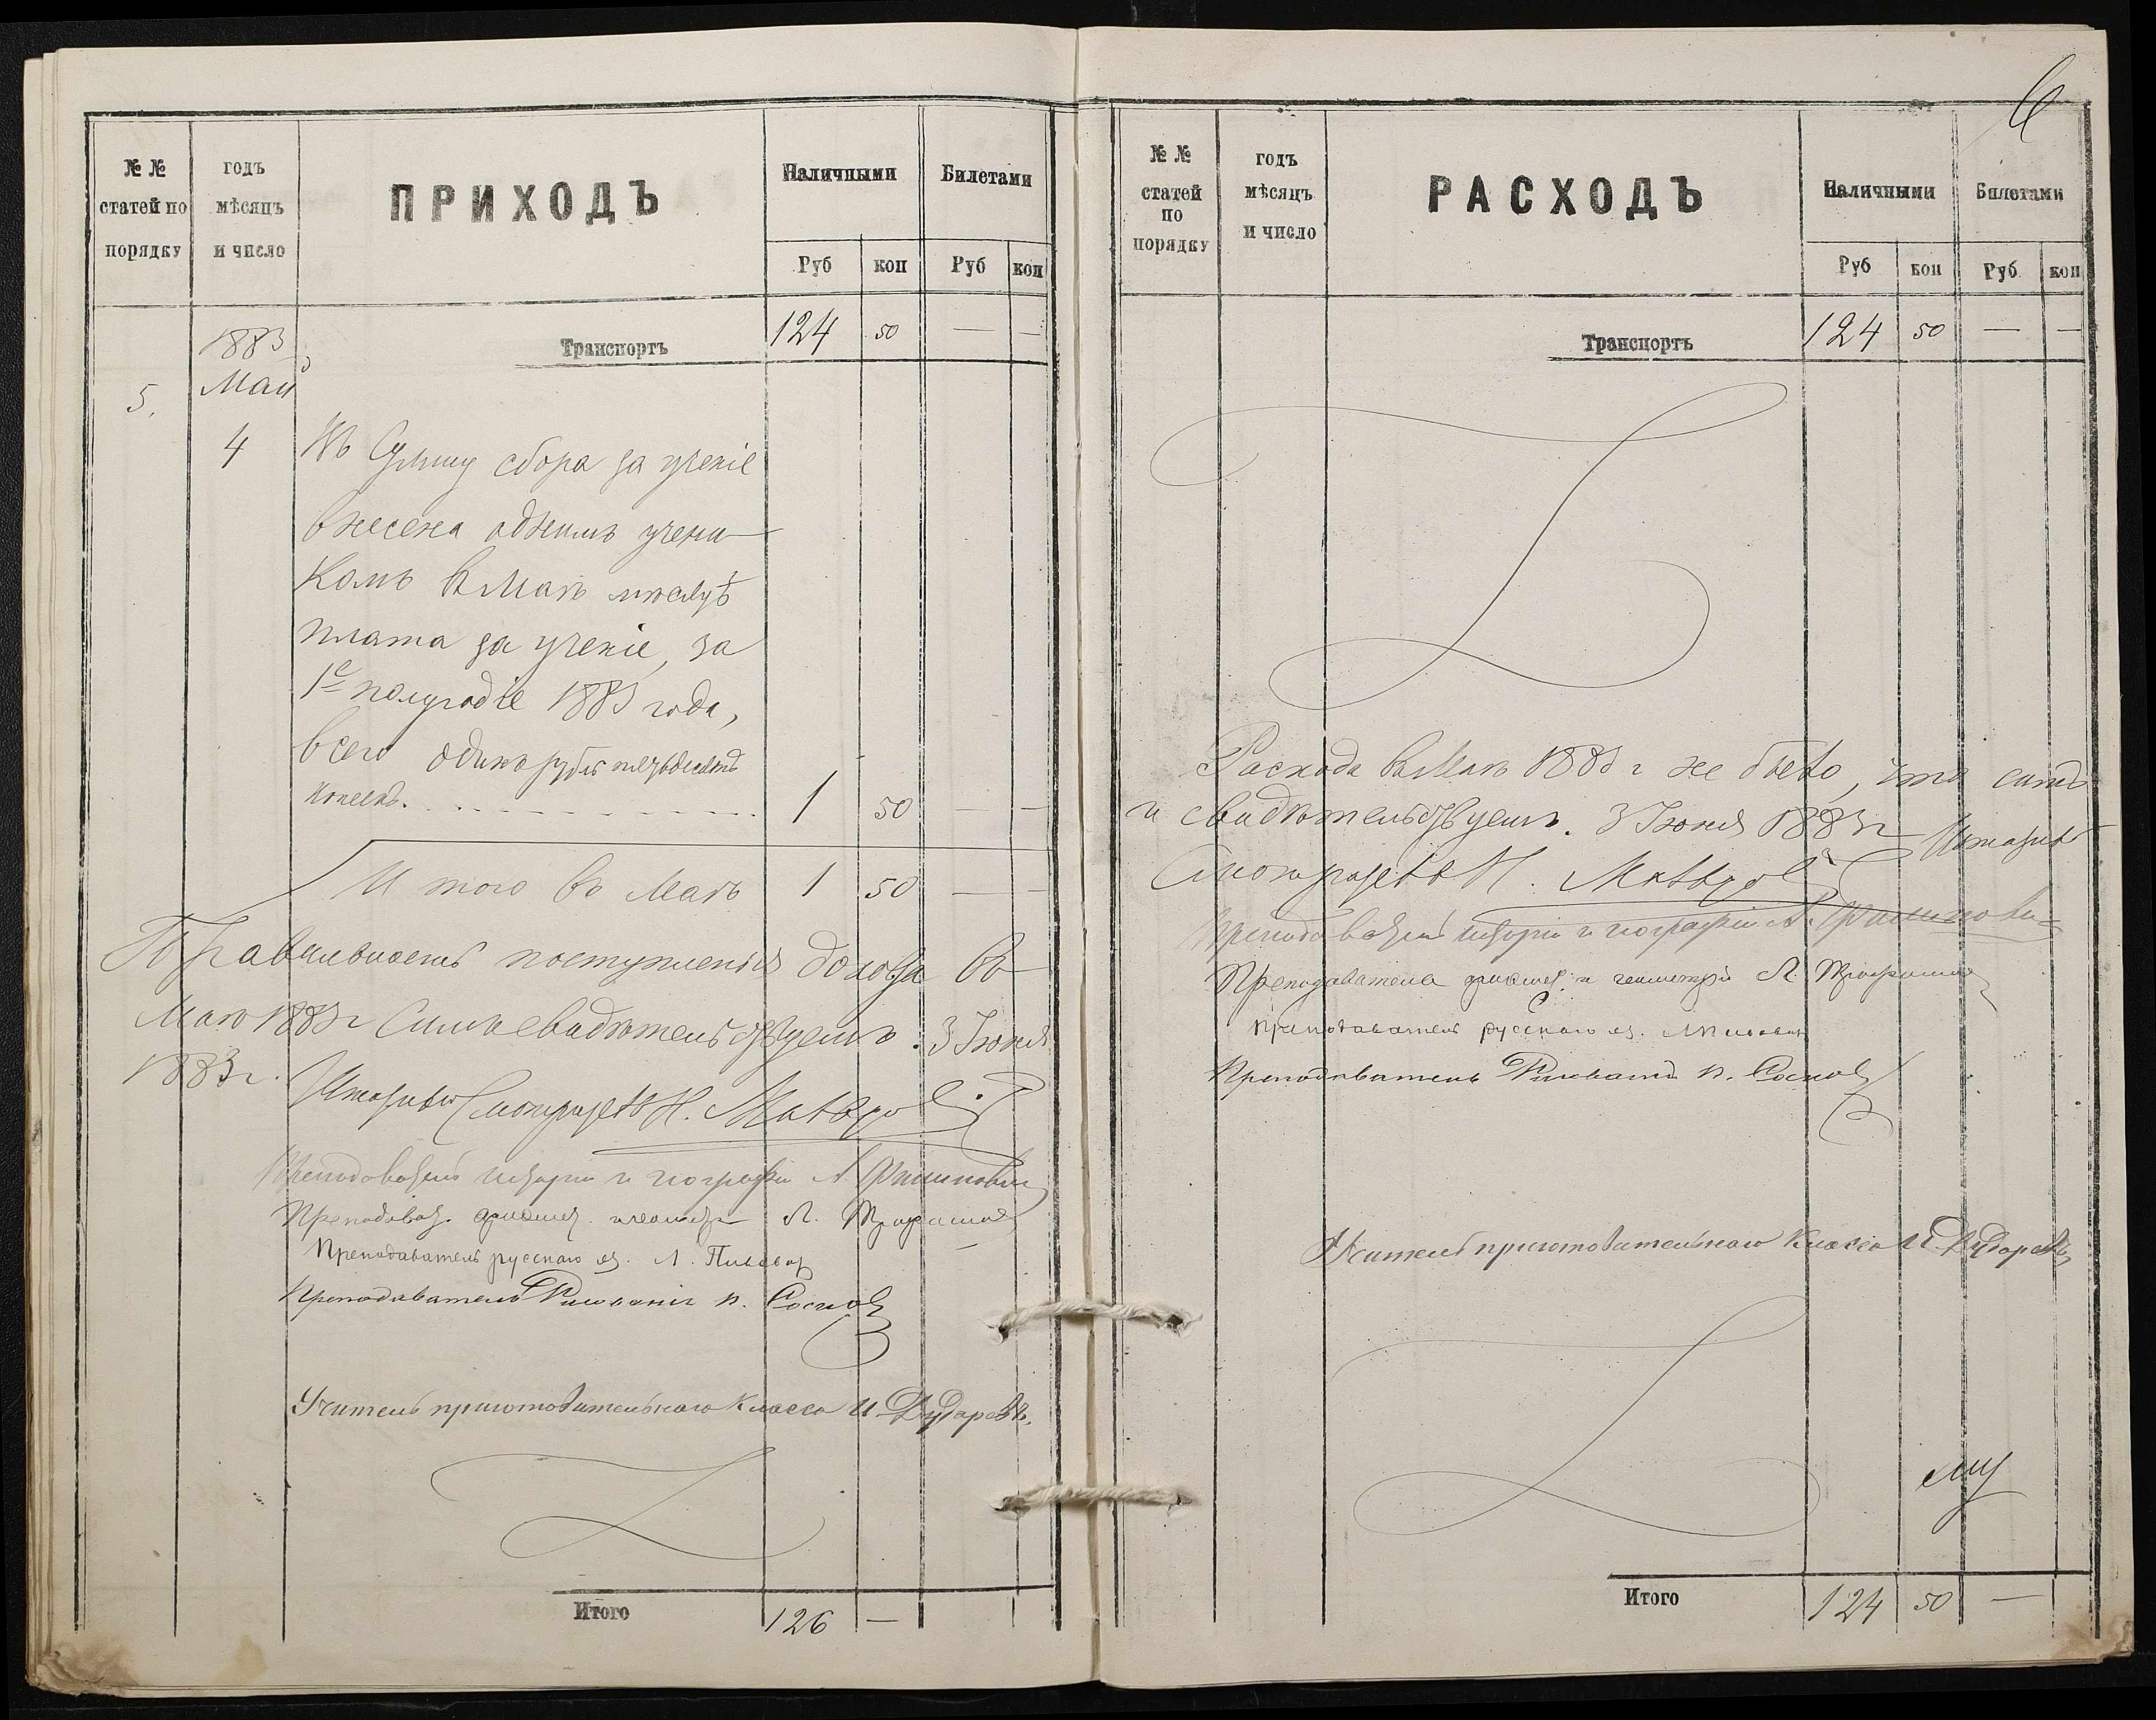 № №
статей по
порядку
годъ
мѣсяцъ
и число
ПРИХОДЪ
Наличными
Билетами
Руб
коп
Руб
коп
1883
Транспортъ
124 50 — —
5.
Май
4
Въ Сумму сбора за ученіе
внесена однимъ учени-
комъ въ Маѣ мѣсяцѣ
плата за ученіе, за
1е полугодіе 1883 года,
всего одинъ рубль пятьдесятъ
копеекъ. 1 50 — —
И того въ Маѣ 1 50 — —
Правильность поступленія дохода въ
Маѣ 1883 г Симъ свидѣтельствуемъ. 3 Іюня
1883 г. Штатный Смотритель Н.
Преподаватель исторіи и географіи А.
Преподават. ариѳмет. и геометр. Л.
Преподаватель русскаго яз. Л.
Преподаватель Рисованія п.
Учитель приготовительнаго класса И.
Итого
126 —
№ №
статей
по
порядку
годъ
мѣсяцъ
и число
РАСХОДЪ
Наличными
Билетами
Руб
коп
Руб
коп
Транспортъ
124 50 — —
Расхода въ Маѣ 1883 г не было, что симъ
и свидѣтельствуемъ. 3 Іюня 1883 г Штатный
Смотритель Н.
Преподаватель исторіи и географіи А.
Преподаватель ариѳмет. и геометріи Л.
Преподаватель русскаго яз.
Преподаватель Рисованія п.
Учитель приготовительнаго класса И.
Итого
124 50 —